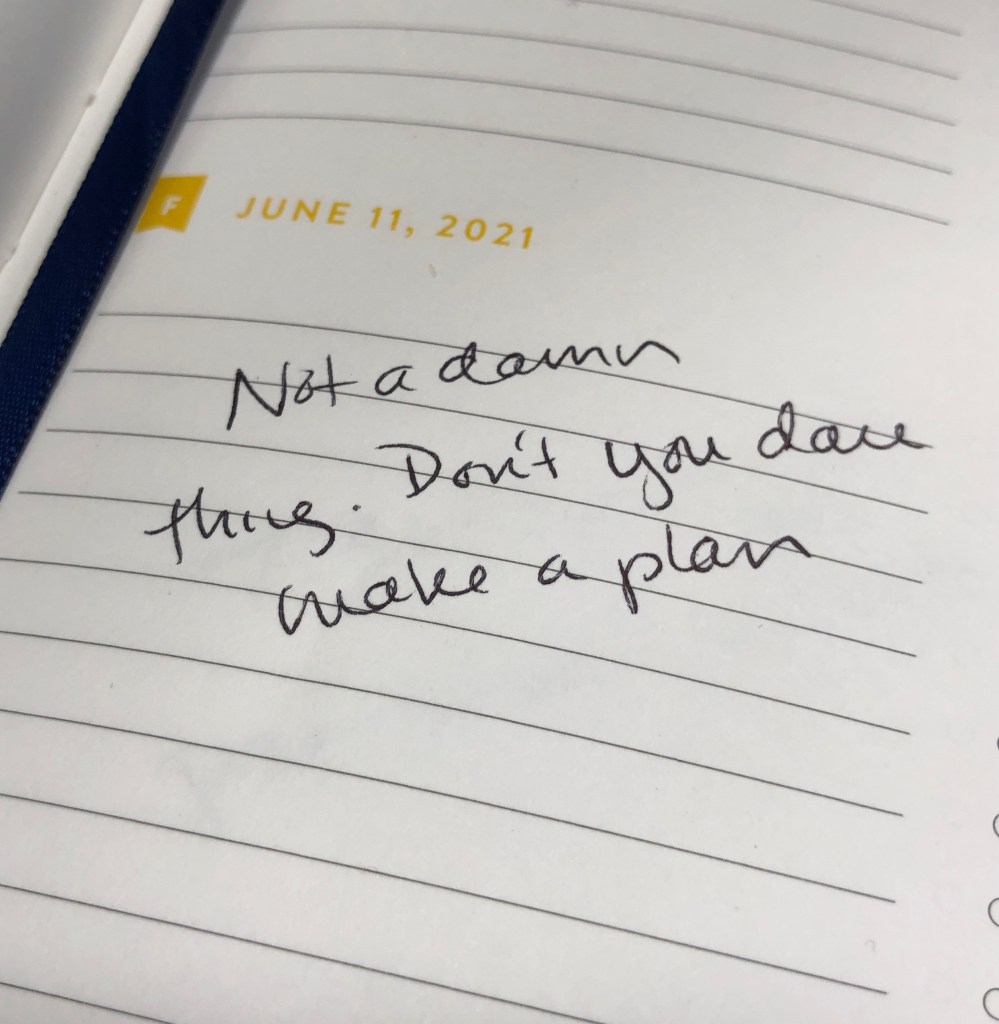 F JUNE 11, 2021
Not a damn
thing. Don't you dare
make a plan